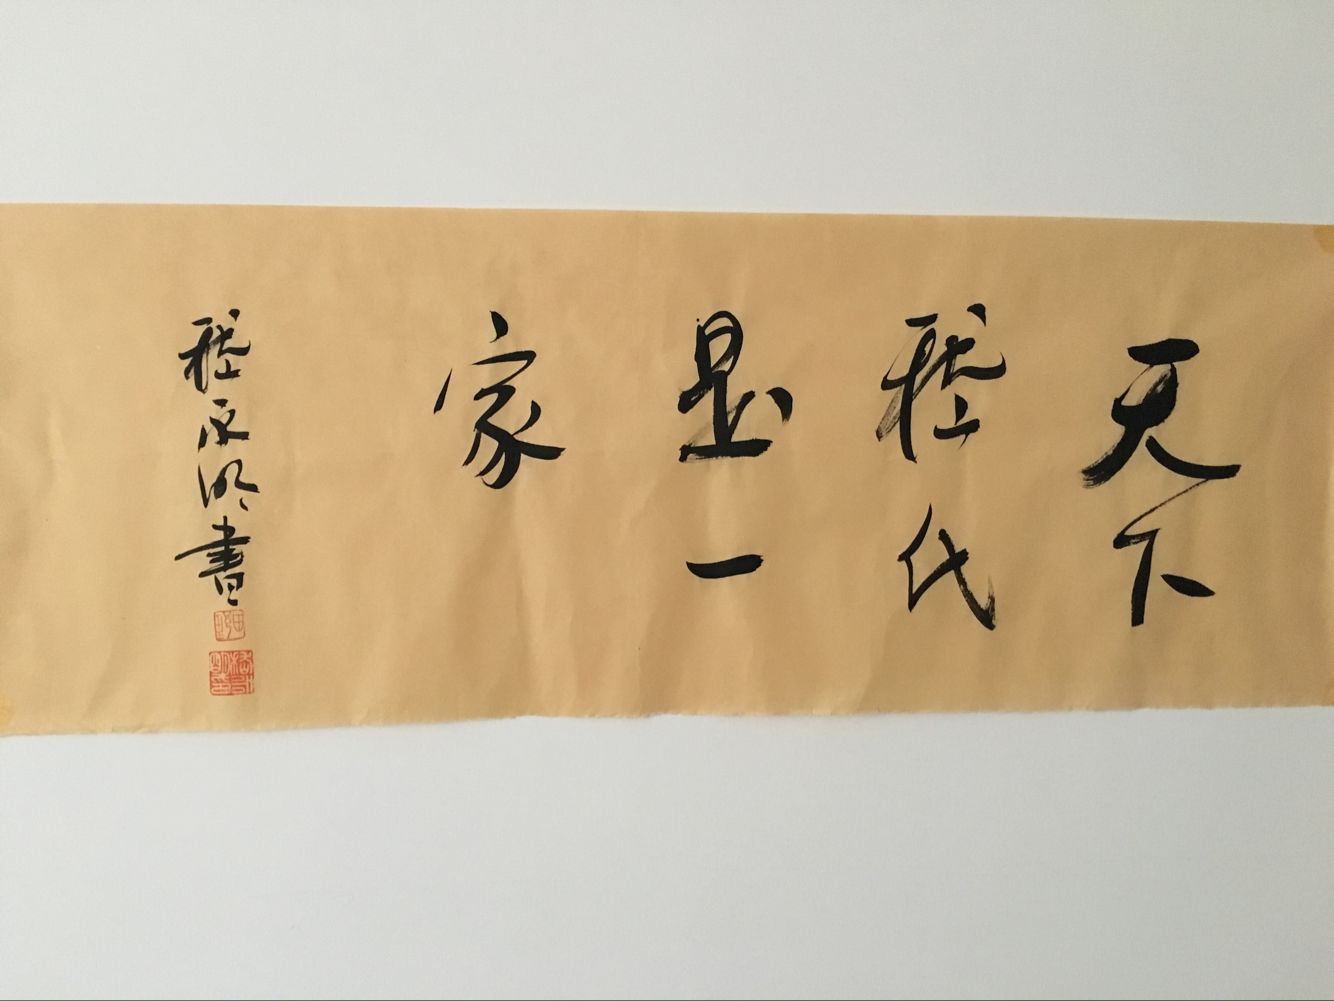 天下
嵇氏
是一
家
嵇 明書